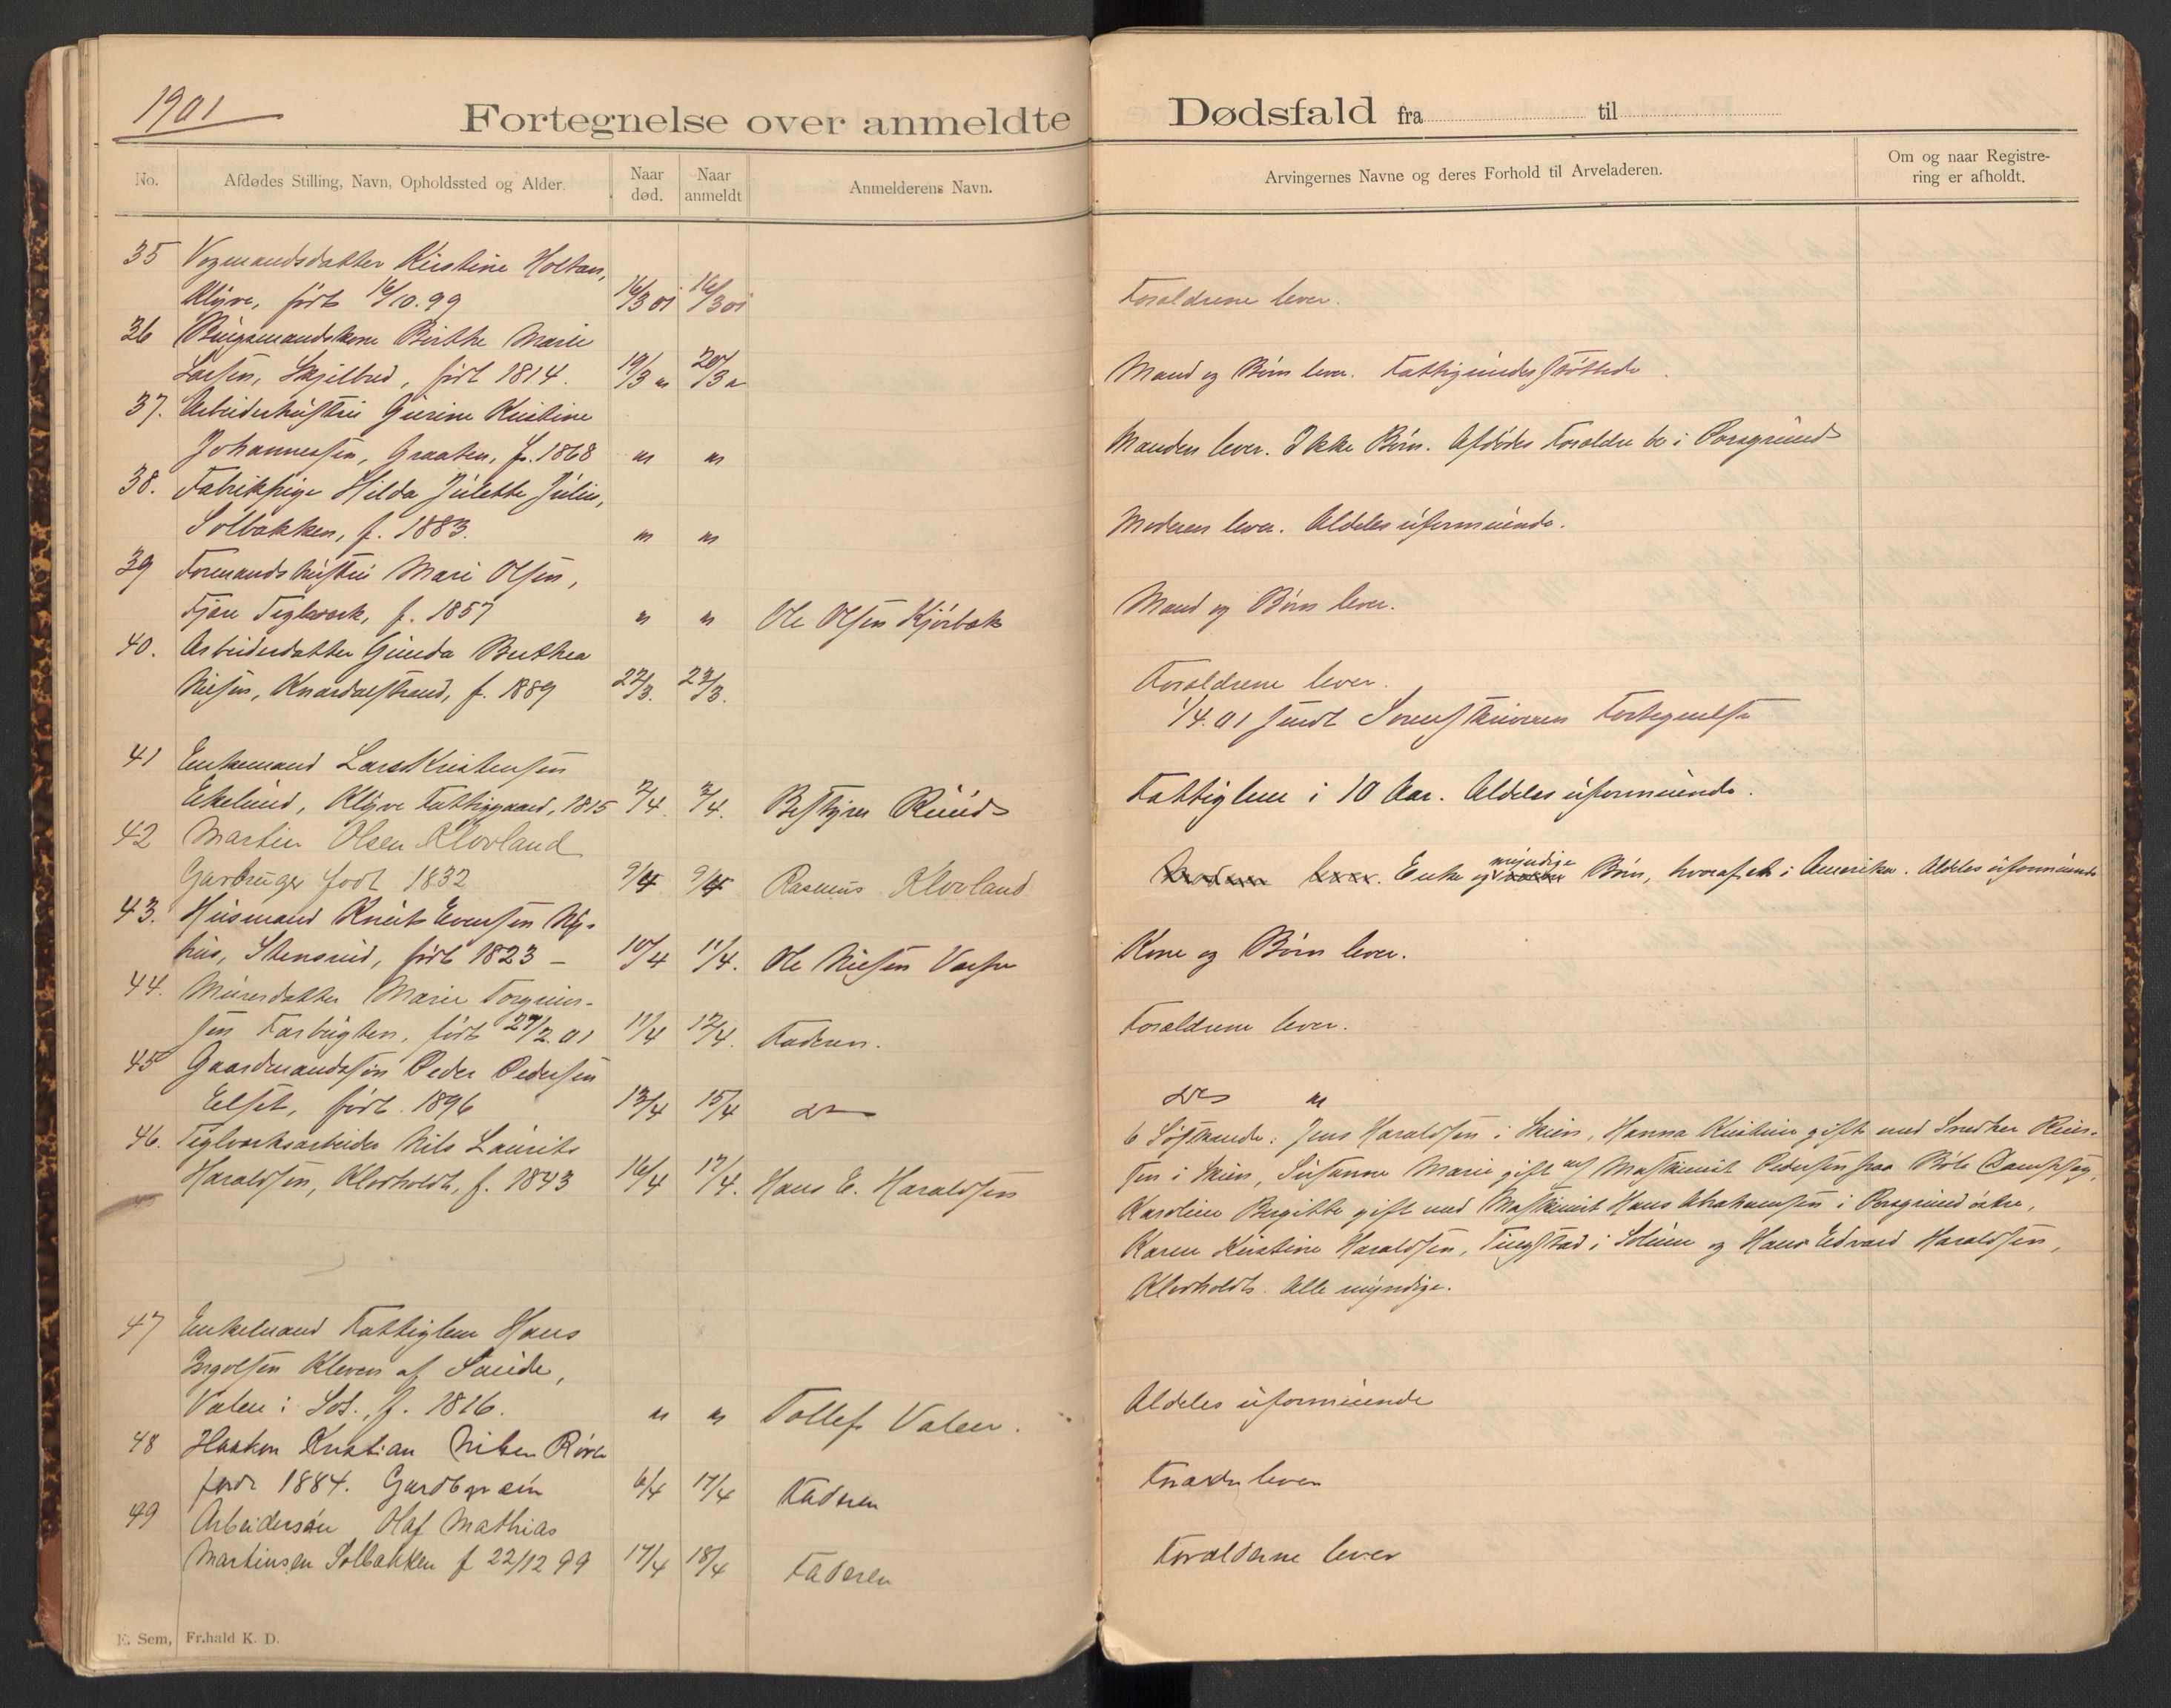 1901
Fortegnelse over anmeldte Dødsfald fra til
No.
Afdødes Stilling, Navn, Opholdssted og Alder.
Naar død.
Naar anmeldt
Anmelderens Navn.
Arvingernes Navne og deres Forhold til Arveladeren.
Om og naar Registrering er afholdt.
35 Vognmandsdatter Kirstine Holtan,
Klyve, født 16/10.99 16/3 01 16/3 01 Forældrene lever.
36 Birthe Marie
Larsen, Skjelbred, født 1814. 19/3 " 20/3 " Mand og Børn lever. Fattigunderstøttede.
37. Arbeiderhustru Gurine Kristine
Johannessen, Graaten, f. 1868 " " Manden lever. Ikke Børn. Afdødes Forældre bor i Porsgrund
38. Fabrikpige Hilda Julette Julin,
Solbakken, f. 1883. " " Moderen lever. Aldeles uformuende.
39 Formandshustru Mari Olsen,
Fjære Teglværk, f. 1857 " " Ole Olsen Kjørbæk Mand og Børn lever.
40. Arbeiderdatter Gunda Berthea
Nilsen, Knardalstrand, f. 1889 22/3. 23/3. Forældrene lever.
1/4.01 sendt Sorenskriveren Fortegnelse
41 Enkemand Lars Kristensen
Ekelund, Klyve Fattiggaard, 1815 2/4. 3/4. Bestyrer Ruud Fattiglem i 10 Aar. Aldeles uformuende.
42 Martin Olsen Klovland
Garbruger født 1832 9/4 9/4 Rasmus Klovland Enke og myndige Børn, hvoraf et i Amerika. Aldeles uformuende
43. Husmand Knut Evensen Ny-
hus, Stensrud, født 1823 – 10/4 11/4. Ole Nilsen Kone og Børn lever.
44. Murerdatter Marie Torgrim-
sen Tarbugten, født 27/2.01 11/4 12/4. Faderen. Forældrene lever.
45 Gaardmandssøn Peder Pedersen
Elset, født 1896 13/4 15/4 do do "
46. Teglverksarbeider Nils Laurits
Haraldsen, Klovholdt, f. 1843 16/4 17/4. Hans E. Haraldsen
6 Søskende: Jens Haraldsen i Skien, Hanna Kristine gift med Snedker
sen i Skien, Susanne Marie gift med Maskinist Pedersen paa Bøle Dampsag,
Karoline Birgitte gift med Maskinist Hans Abrahamsen i Porsgrund østre,
Karen Kirstine Haraldsen, Tingstad i Solum og Hans Edvard Haraldsen,
Klovholdt. Alle myndige.
47 Enkemand Fattiglem Hans
Ingolfsen Kleven af Saude,
Valen i Sol., f. 1816. " " Tollef Valen. Aldeles uformuende
48 Haakon Kristian Nilsen
født 1884. Gardbr søn 6/4 17/4 Faderen lever
49 Arbeidersøn Olaf Mathias
Martinsen Solbakken f 22/12 99 17/4 18/4 Faderen Forælderne lever
E. Sem, Fr.hald K. D.